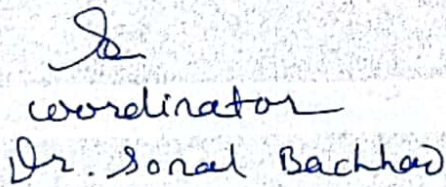 coordinator
Dr. Sonal Bachhav